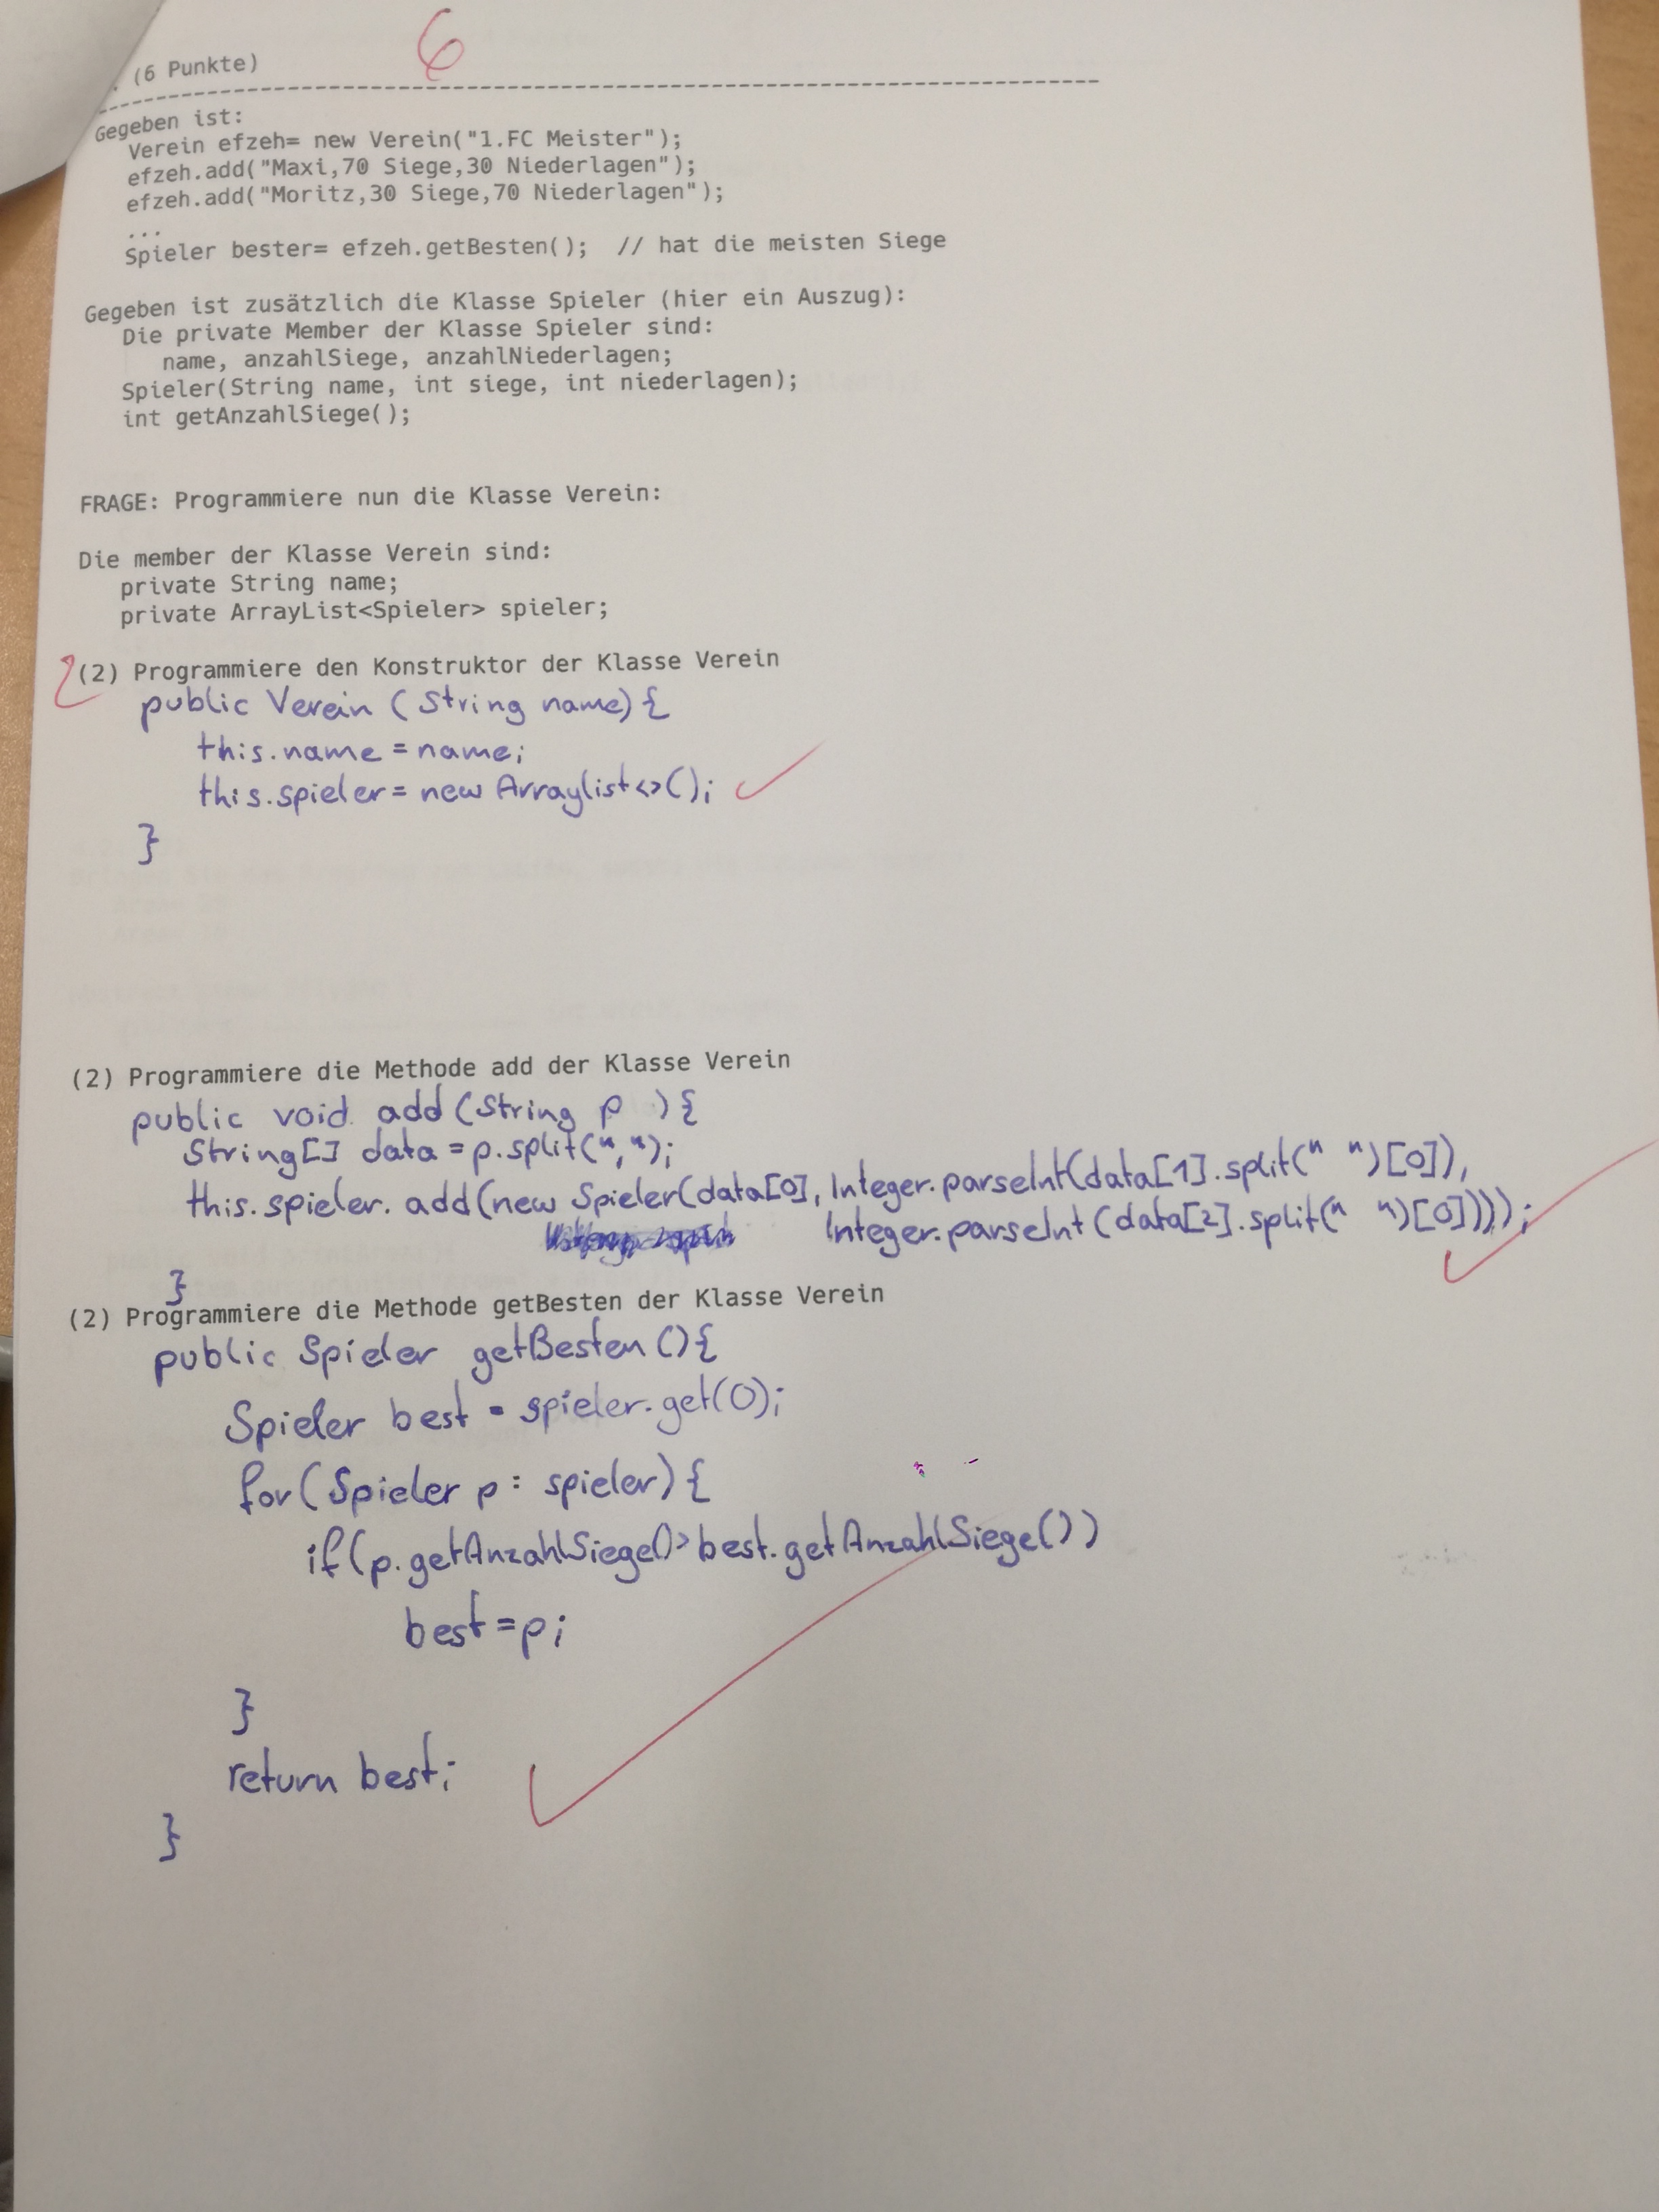 (6 Punkte) 6
Gegeben ist:
Verein efzeh= new Verein("1.FC Meister");
efzeh.add("Maxi,70 Siege,30 Niederlagen");
efzeh.add("Moritz,30 Siege,70 Niederlagen");
...
Spieler bester= efzeh.getBesten(); // hat die meisten Siege
Gegeben ist zusätzlich die Klasse Spieler (hier ein Auszug):
Die private Member der Klasse Spieler sind:
name, anzahlSiege, anzahlNiederlagen;
Spieler(String name, int siege, int niederlagen);
int getAnzahlSiege();
FRAGE: Programmiere nun die Klasse Verein:
Die member der Klasse Verein sind:
private String name;
private ArrayList<Spieler> spieler;
2 (2) Programmiere den Konstruktor der Klasse Verein
public Verein (String name){
this.name = name;
this.spieler = new Arraylist<>();
}
(2) Programmiere die Methode add der Klasse Verein
public void add (String p ){
String[] data = p.split(",");
this.spieler.add(new Spieler(data[0], Integer.parseInt(data[1].split(" ")[0]),
Integer.parseInt(data[2].split(" ")[0])));
}
(2) Programmiere die Methode getBesten der Klasse Verein
public Spieler getBesten(){
Spieler best = spieler.get(0);
for(Spieler p : spieler){
if(p.getAnzahlSiege()>best.getAnzahlSiege())
best=p;
}
return best;
}